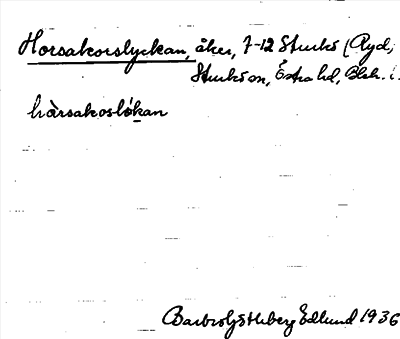 Horsakorslyckan, åker, 7-12 Sturkö (Ryd;
Sturkö sn, Östra hd, Blek. l.
hàrsakoslókan
Barbro Söderberg Edlund 1936